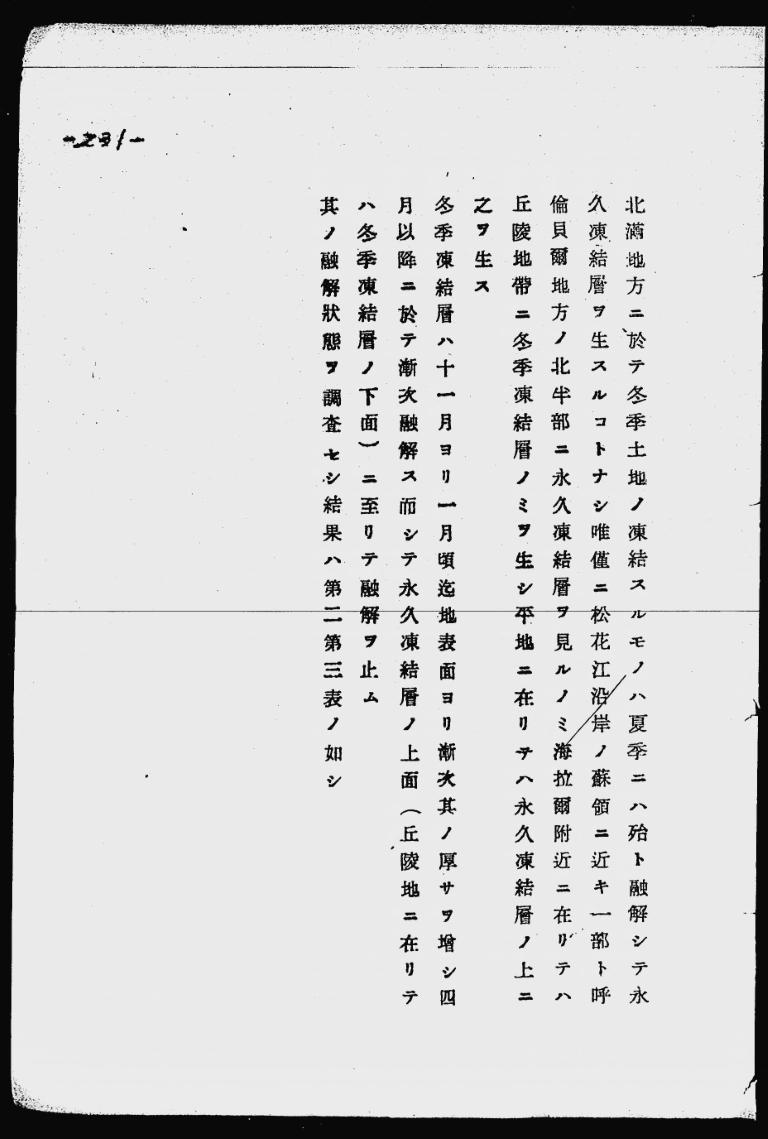 -231-
北滿地方ニ於テ冬季土地ノ凍結スルモノハ夏季ニハ殆ト融解シテ永
久凍結層ヲ生スルコトナシ唯僅ニ松花江沿岸ノ蘇領ニ近キ一部ト呼
倫貝爾地方ノ北半部ニ永久凍結層ヲ見ルノミ海拉爾附近ニ在リテハ
丘陵地帶ニ冬季凍結層ノミヲ生シ平地ニ在リテハ永久凍結層ノ上ニ
之ヲ生ス
冬季凍結層ハ十一月ヨリ一月頃迄地表面ヨリ漸次其ノ厚サヲ增シ四
月以降ニ於テ漸次融解ス而シテ永久凍結層ノ上面(丘陵地ニ在リテ
ハ冬季凍結層ノ下面)ニ至リテ融解ヲ止ム
其ノ融解狀態ヲ調査セシ結果ハ第二第三表ノ如シ